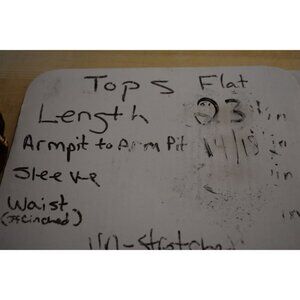 Tops Flat
Length 23 in
Armpit to Arm Pit 14/18 in
Sleeve in
Waist in
(If Cinched)
Un-Stretched